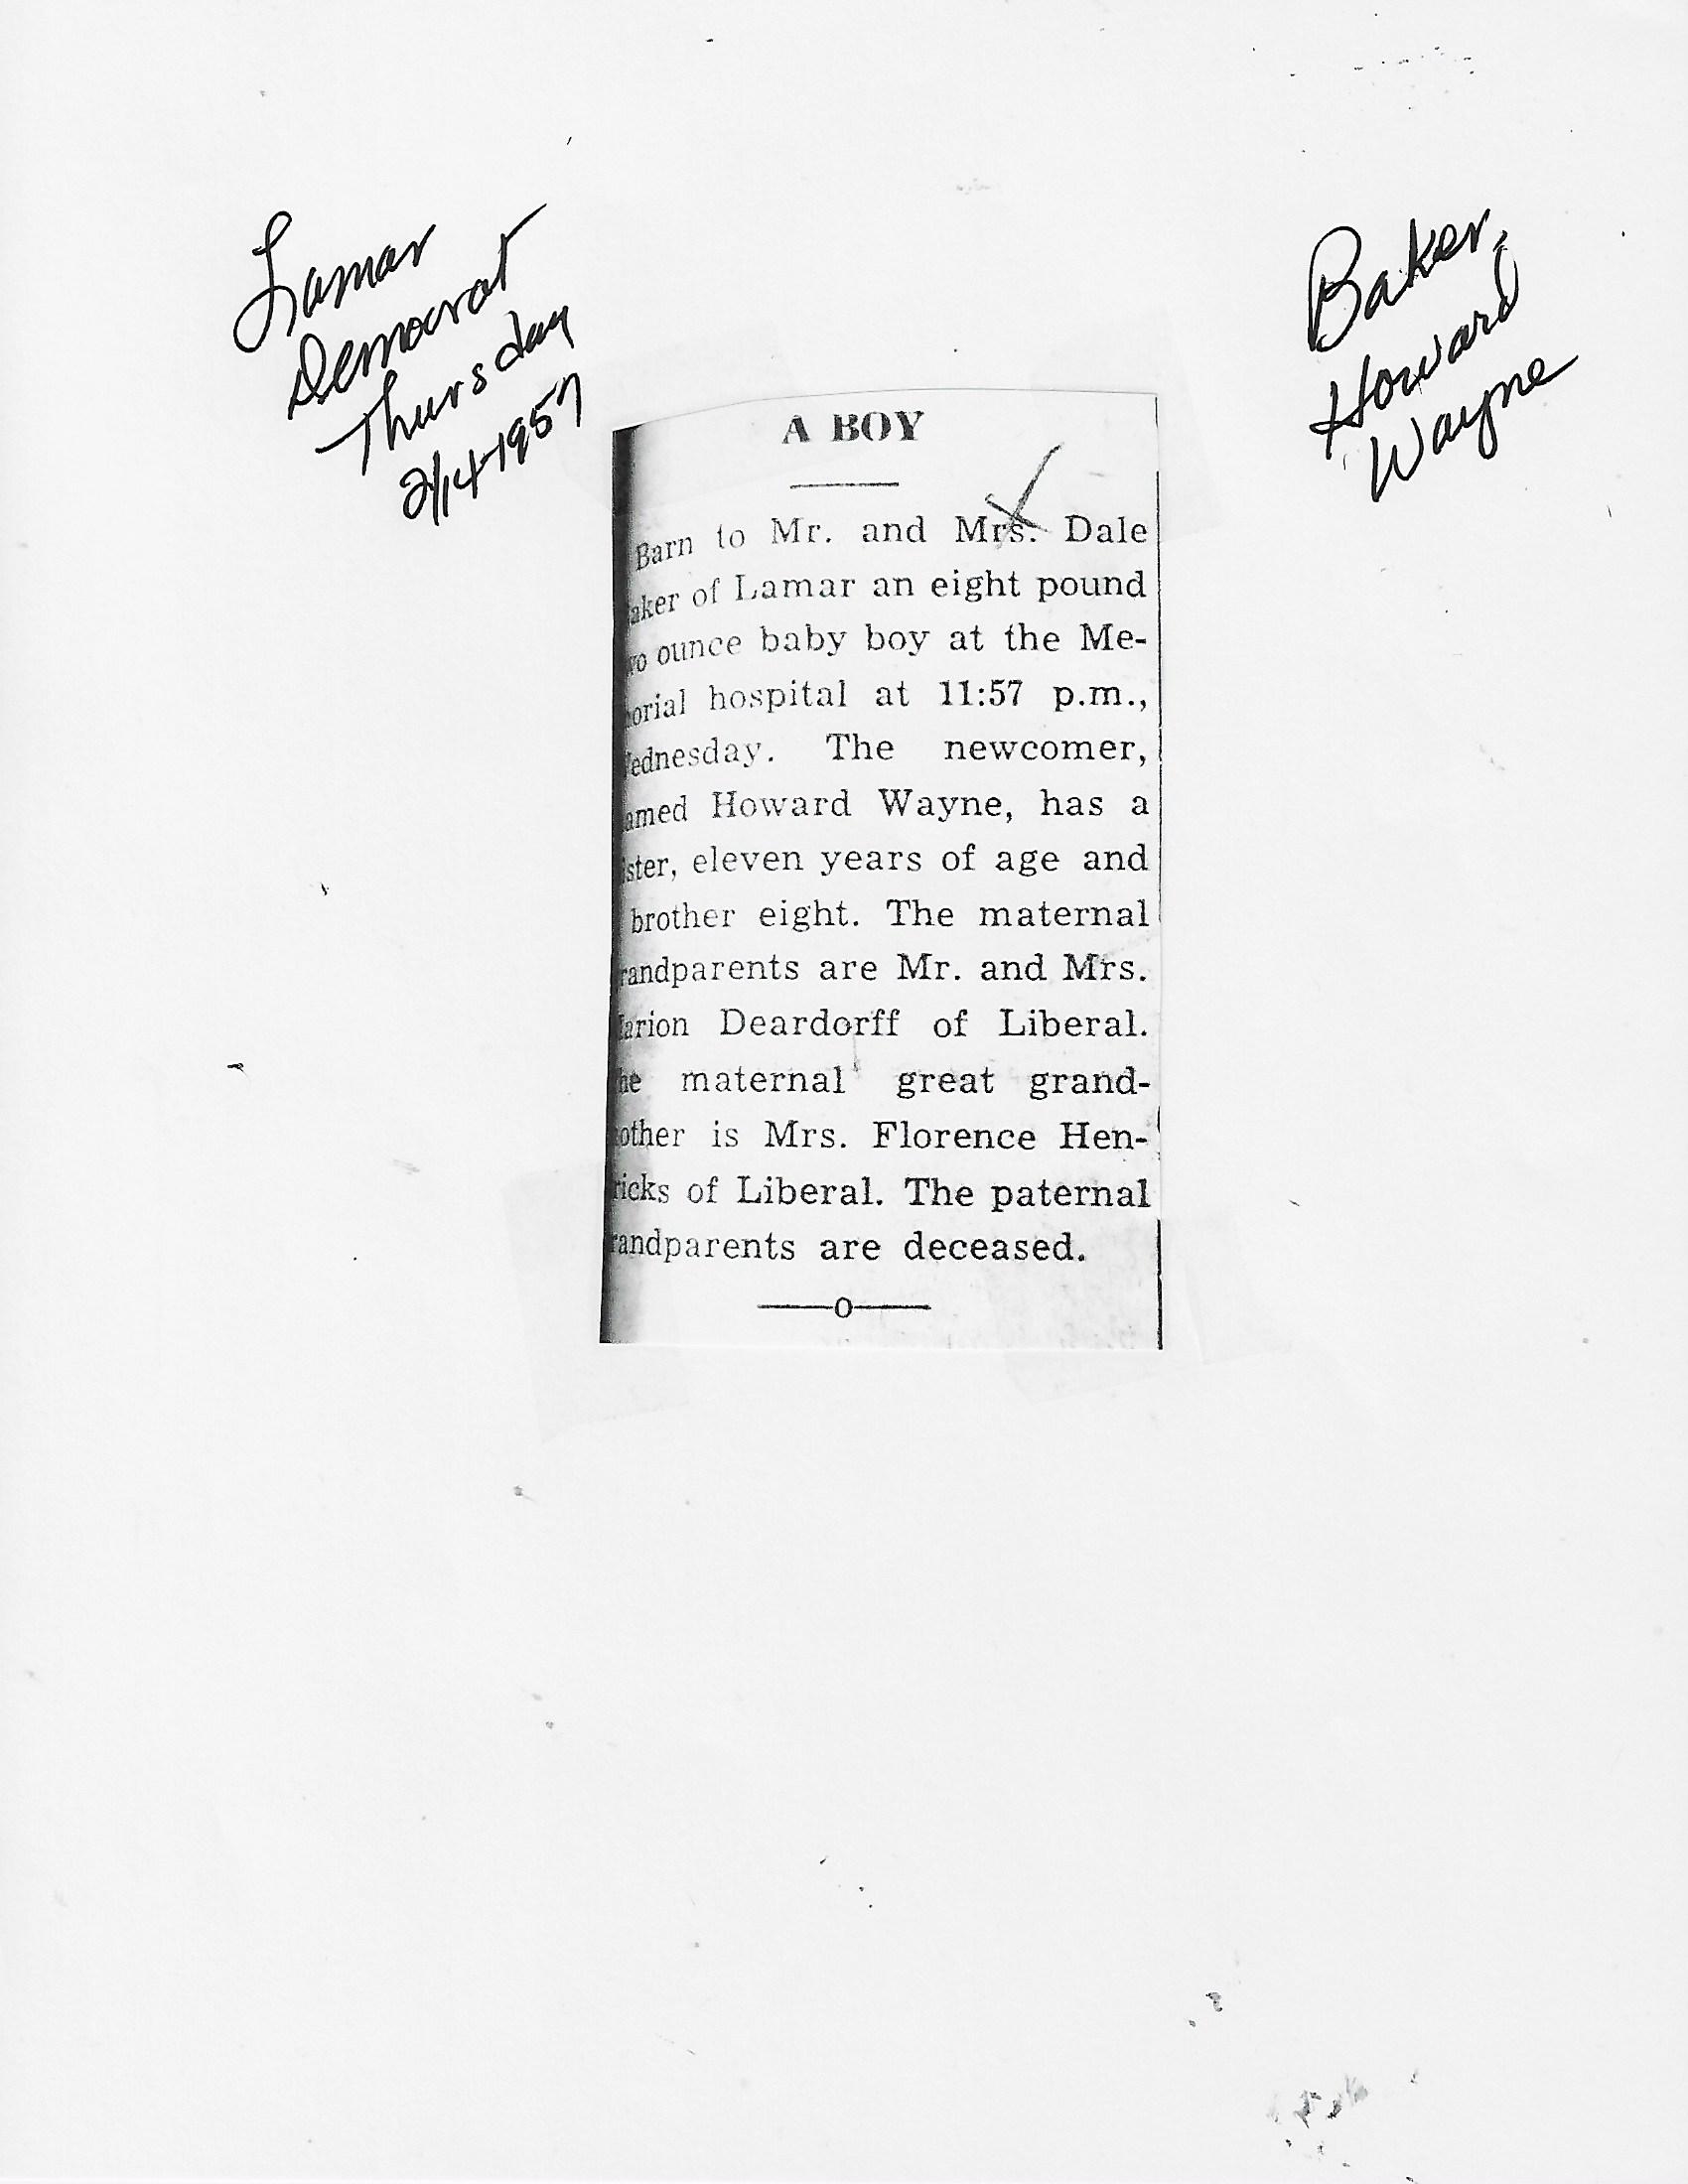 Lamar
Democrat
Thursday
2/14-1957
Baker,
Howard
Wayne
A BOY
Barn to Mr. and Mrs. Dale
aker of Lamar an eight pound
wo ounce baby boy at the Me-
orial hospital at 11:57 p.m.,
Wednesday. The newcomer,
amed Howard Wayne, has a
ister, eleven years of age and
brother eight. The maternal
randparents are Mr. and Mrs.
arion Deardorff of Liberal.
he maternal great grand-
other is Mrs. Florence Hen-
ricks of Liberal. The paternal
randparents are deceased.
——o——